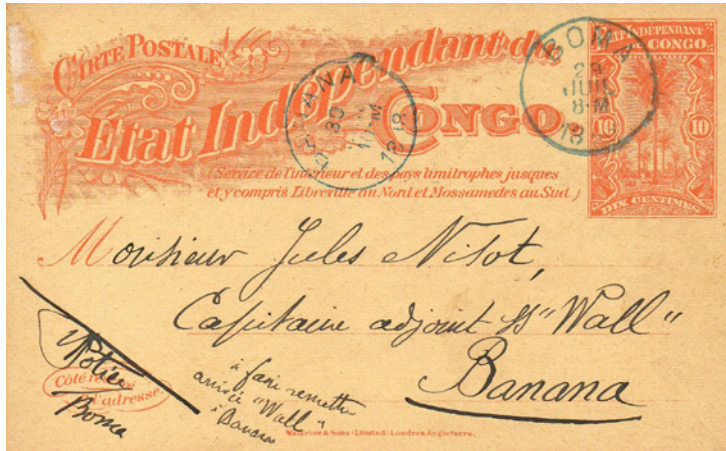 CARTE POSTALE
État Indépendant du
CONGO
(Service de l'intérieur et des pays limitrophes jusques
et y compris Libreville au Nord et Mossamedes au Sud.)
ETAT INDÉPENDANT
CONGO
10 10
DIX CENTIMES
BOMA
29
JUIL
8-M
BANANA
30
Monsieur Jules Nisot,
Capitaine adjoint SS "Wall"
Banana
Côté
l'adresse.
Boma
à faire remettre
arrivée "Wall"
à Banana
Waterlow & Sons Limited, Londres Angleterre.